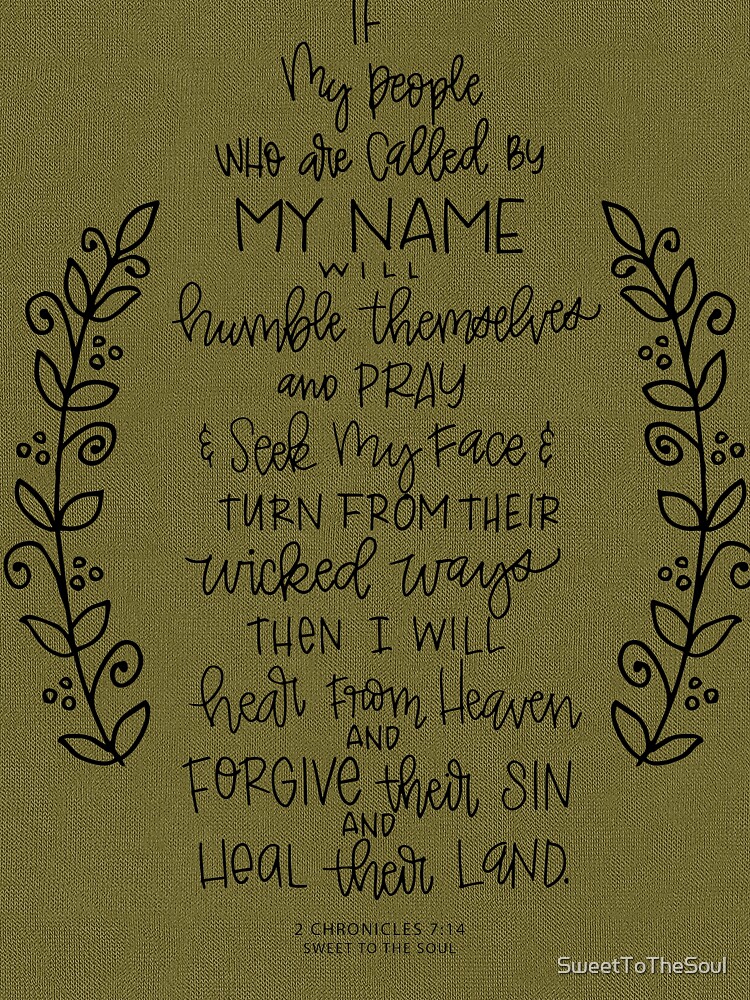 IF
My people
WHO are Called BY
MY NAME
WILL
humble themselves
and PRAY
& Seek My Face &
TURN FROM THEIR
wicked ways
THEN I WILL
hear From Heaven
AND
FORGIVE their SIN
AND
HEAL their LAND.
2 CHRONICLES 7:14
SWEET TO THE SOUL
SweetToTheSoul